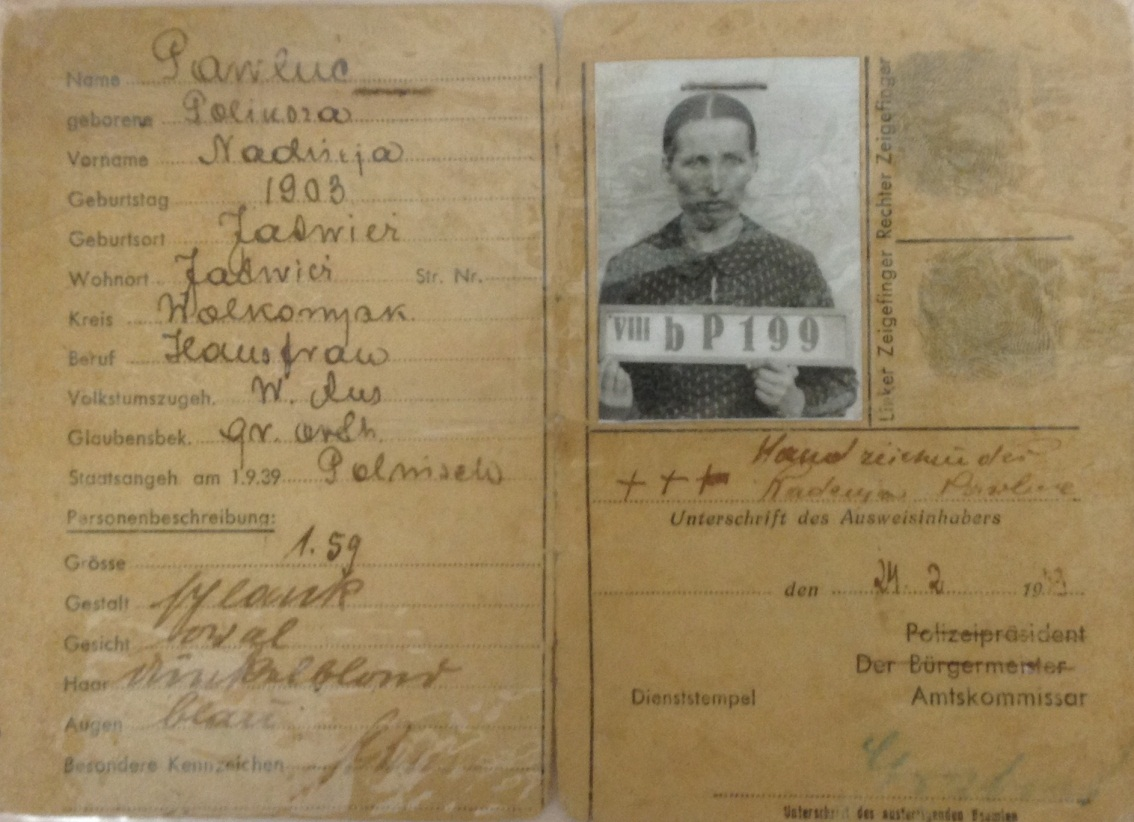 Name Pawluc
geborene Polinora
Vorname Nadzieja
Geburtstag 1903
Geburtsort Jadwier
Wohnort Jadwier Str. Nr.
Kreis Wolkowysk
Beruf Hausfrau
Volkstumszugeh. W. Rus
Glaubensbek. gr. orth.
Staatsangeh am 1.9.39 Polnisch
Personenbeschreibung:
Grösse 1.59
Gestalt schlank
Gesicht oval
Haar dunkelblond
Augen blau
Besondere Kennzeichen
VIII b P 199
Linker Zeigefinger Rechter Zeigefinger
+++ Handzeichen der
Unterschrift des Ausweisinhabers
den 24. 2 19
Polizeipräsident
Der Bürgermeister
Dienststempel Amtskommissar
Unterschrift des ausfertigenden Beamten